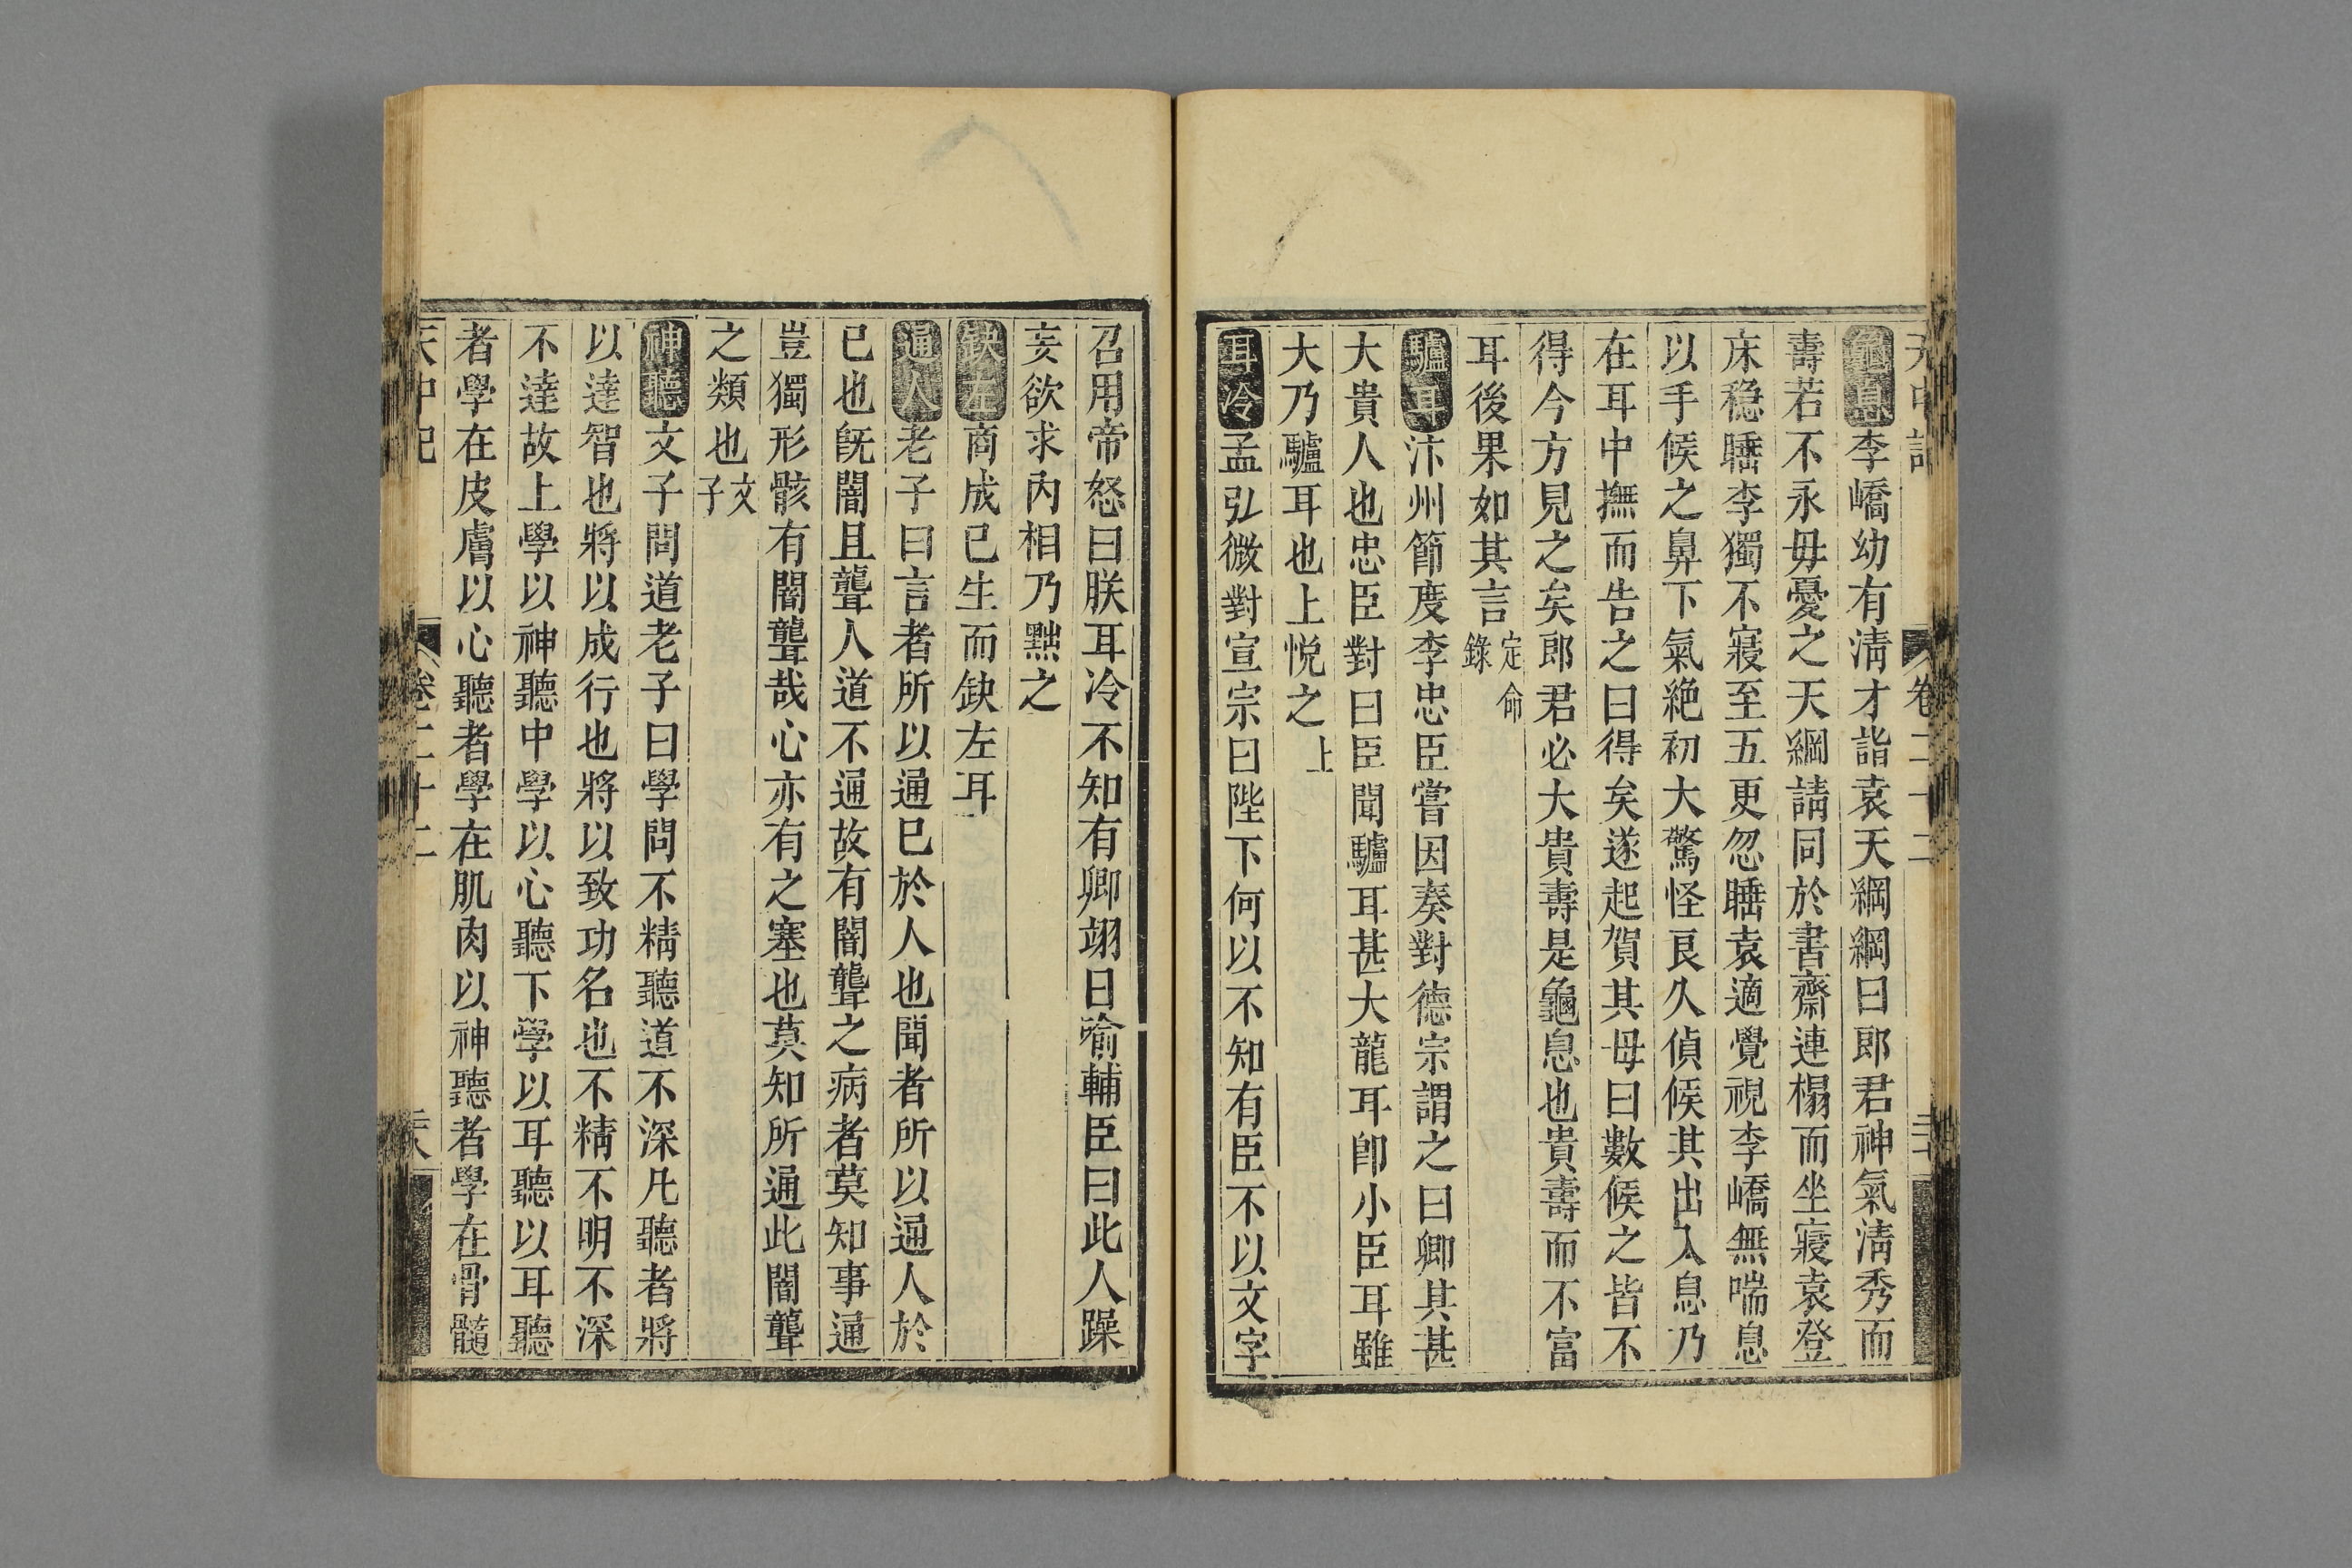 龜息李嶠幼有清才詣袁天綱綱曰郎君神氣清秀而
壽若不永毋憂之天綱請同於書齋連榻而坐寢袁登
床穩睡李獨不寢至五更忽睡袁適覺視李嶠無喘息
以手候之鼻下氣絶初大驚怪良久偵候其出入息乃
在耳中撫而告之曰得矣遂起賀其母曰數候之皆不
得今方見之矣郎君必大貴壽是龜息也貴壽而不富
耳後果如其言定命錄
驢耳汴州節度李忠臣嘗因奏對德宗謂之曰卿其甚
大貴人也忠臣對曰臣聞驢耳甚大龍耳卽小臣耳雖
大乃驢耳也上悅之上
耳冷孟弘微對宣宗曰陛下何以不知有臣不以文字
召用帝怒曰朕耳冷不知有卿翊日喻輔臣曰此人躁
妄欲求內相乃黜之
缺左商成已生而缺左耳
通人老子曰言者所以通已於人也聞者所以通人於
已也旣闇且聾人道不通故有闇聾之病者莫知事通
豈獨形骸有闇聾哉心亦有之塞也莫知所通此闇聾
之類也文子
神聽文子問道老子曰學問不精聽道不深凡聽者將
以達智也將以成行也將以致功名也不精不明不深
不達故上學以神聽中學以心聽下學以耳聽以耳聽
者學在皮膚以心聽者學在肌肉以神聽者學在骨髓
天中記
卷二十二